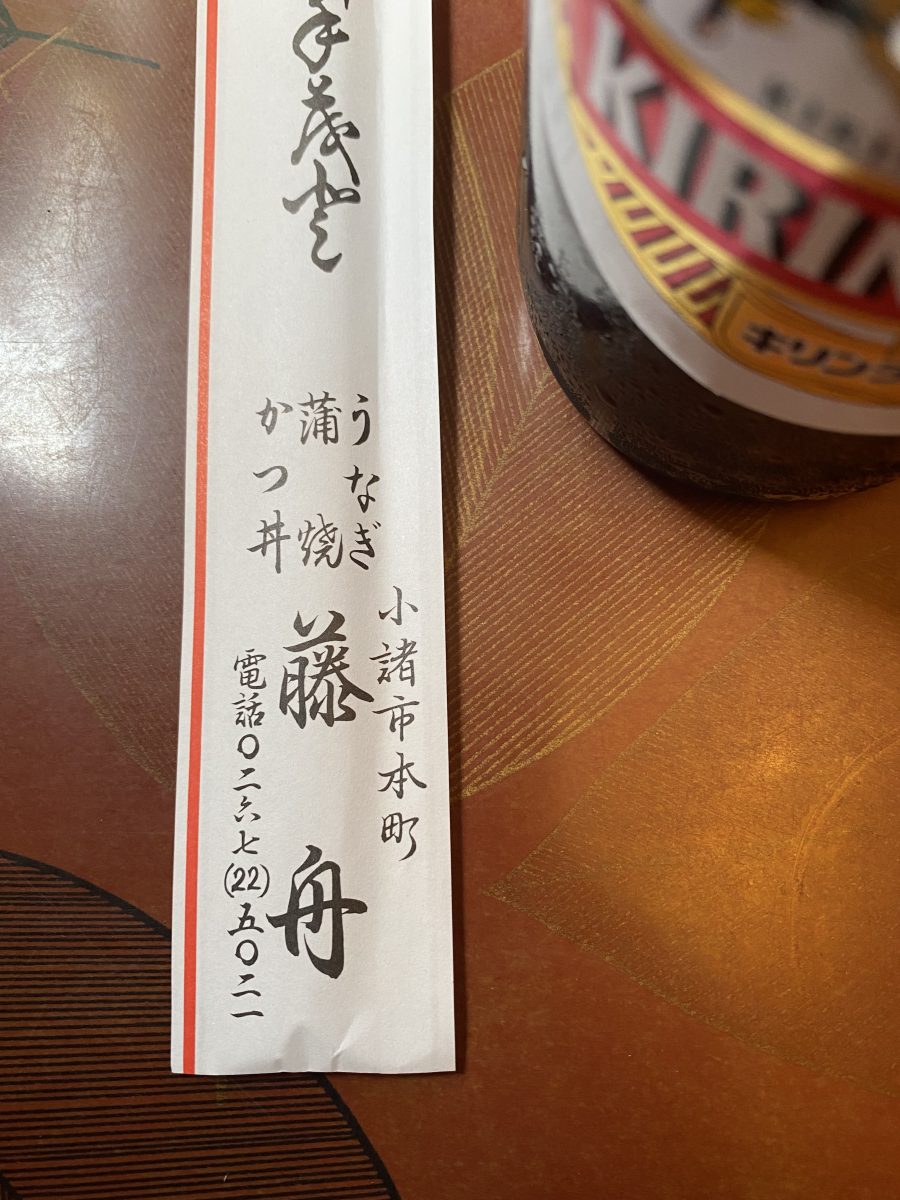 手茂登
うなぎ
蒲焼
かつ丼
小諸市本町
藤舟
電話〇二六七(22)五〇二一
KIRIN
キリン